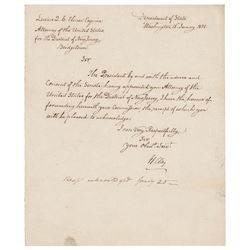 Lucius Q. C. Elmer Esquire
Attorney of the United States
for the District of New Jersey,
Bridgetown
Department of State
Washington, January
Sir
The President by and with the advice and
Consent of the Senate having appointed you Attorney of the
United States for the District of New Jersey, I have the honor of
forwarding herewith your Commission the receipt of which you
will be pleased to acknowledge.
I am Very Respectfully
Sir
Your Obedt Servt
H Clay